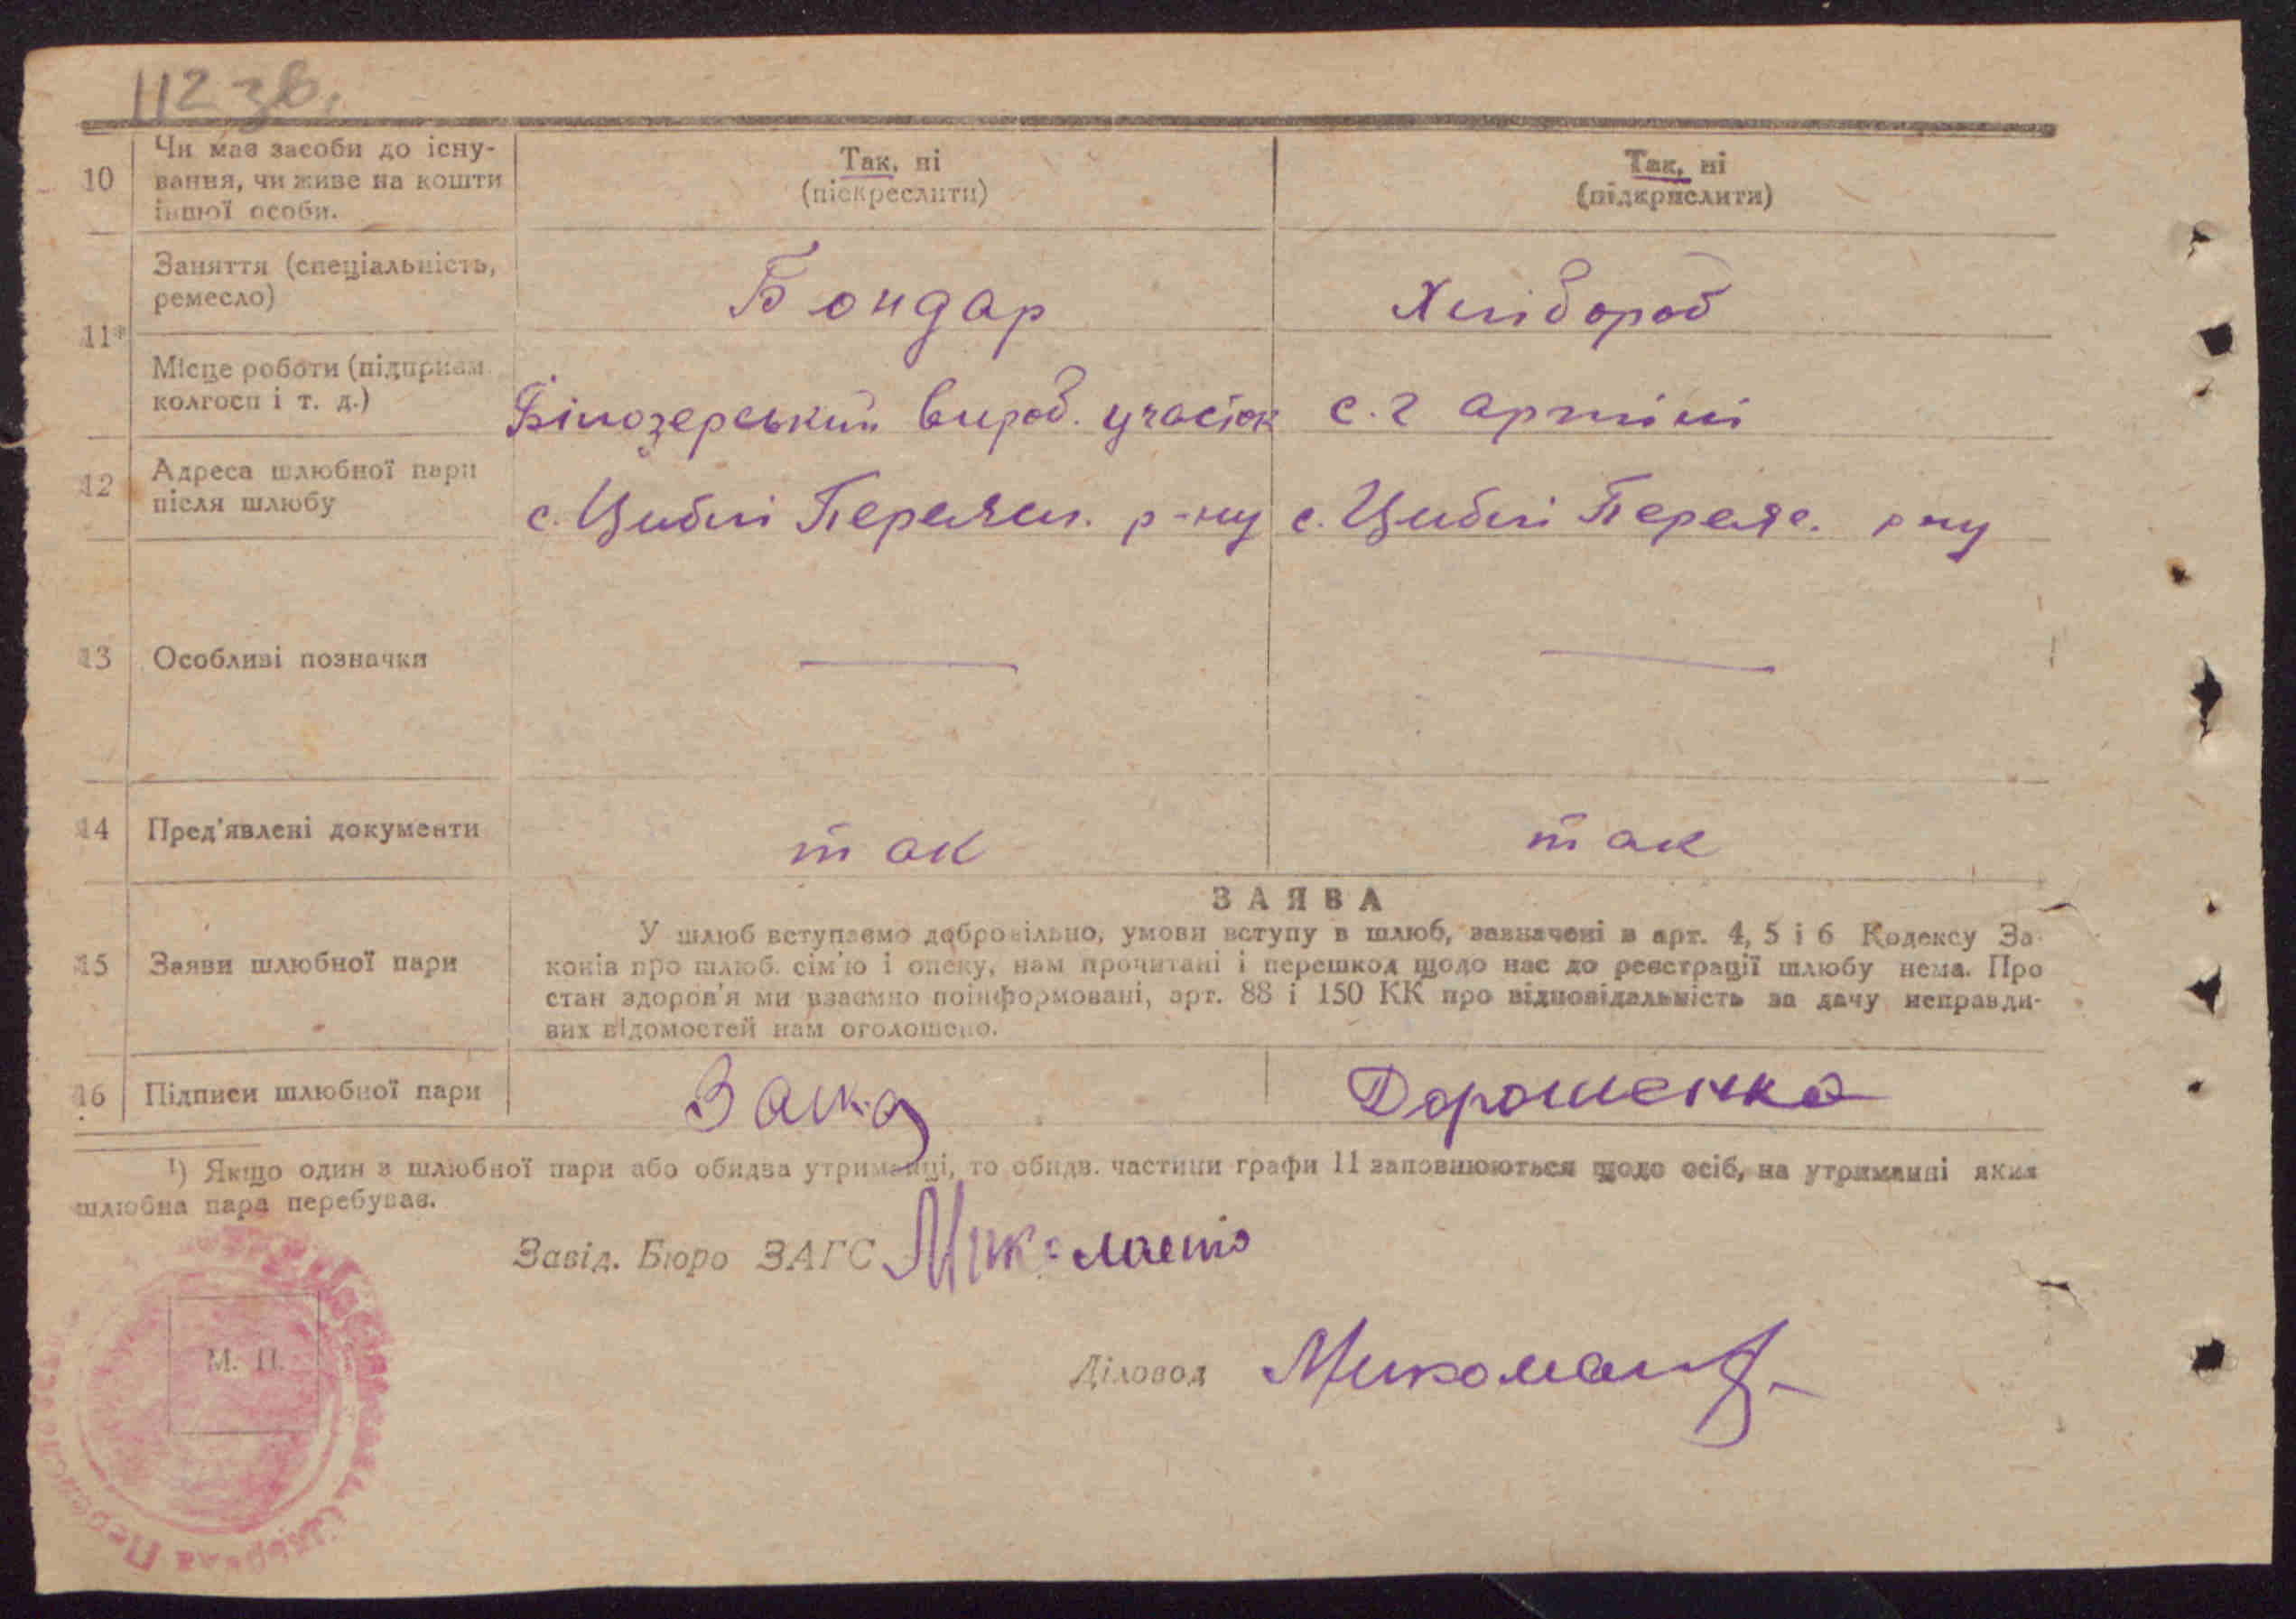 112 зв.
10
Чи має засоби до існу-
вання, чи живе на кошти
іншої особи.
Так, ні
(піскреслити)
Так, ні
(підкрислити)
11*
Заняття (спеціальність,
ремесло)
Бондар
Хлібороб
Місце роботи (підприєм.
колгосп і т. д.)
Білозерський вироб. участок
с. г артілі
12
Адреса шлюбної пари
після шлюбу
с. Циблі Переясл. р-ну
с. Циблі Переяс. р ну
13
Особливі позначки
14
Пред'явлені документи
так
так
15
Заяви шлюбної пари
ЗАЯВА
У шлюб вступаємо добровільно, умови вступу в шлюб, зазначені в арт. 4, 5 і 6 Кодексу За-
конів про шлюб. сім'ю і опеку, нам прочитані і перешкод щодо нас до реєстрації шлюбу нема. Про
стан здоров'я ми взаємно поінформовані, арт. 88 і 150 КК про відповідальність за дачу неправди-
вих відомостей нам оголошено.
16
Підписи шлюбної пари
Дорошенко
¹) Якщо один з шлюбної пари або обидва утриманці, то обидв. частини графи 11 заповнюються щодо осіб, на утриманні яких
шлюбна пара перебуває.
Завід. Бюро ЗАГС
М. П.
Діловод